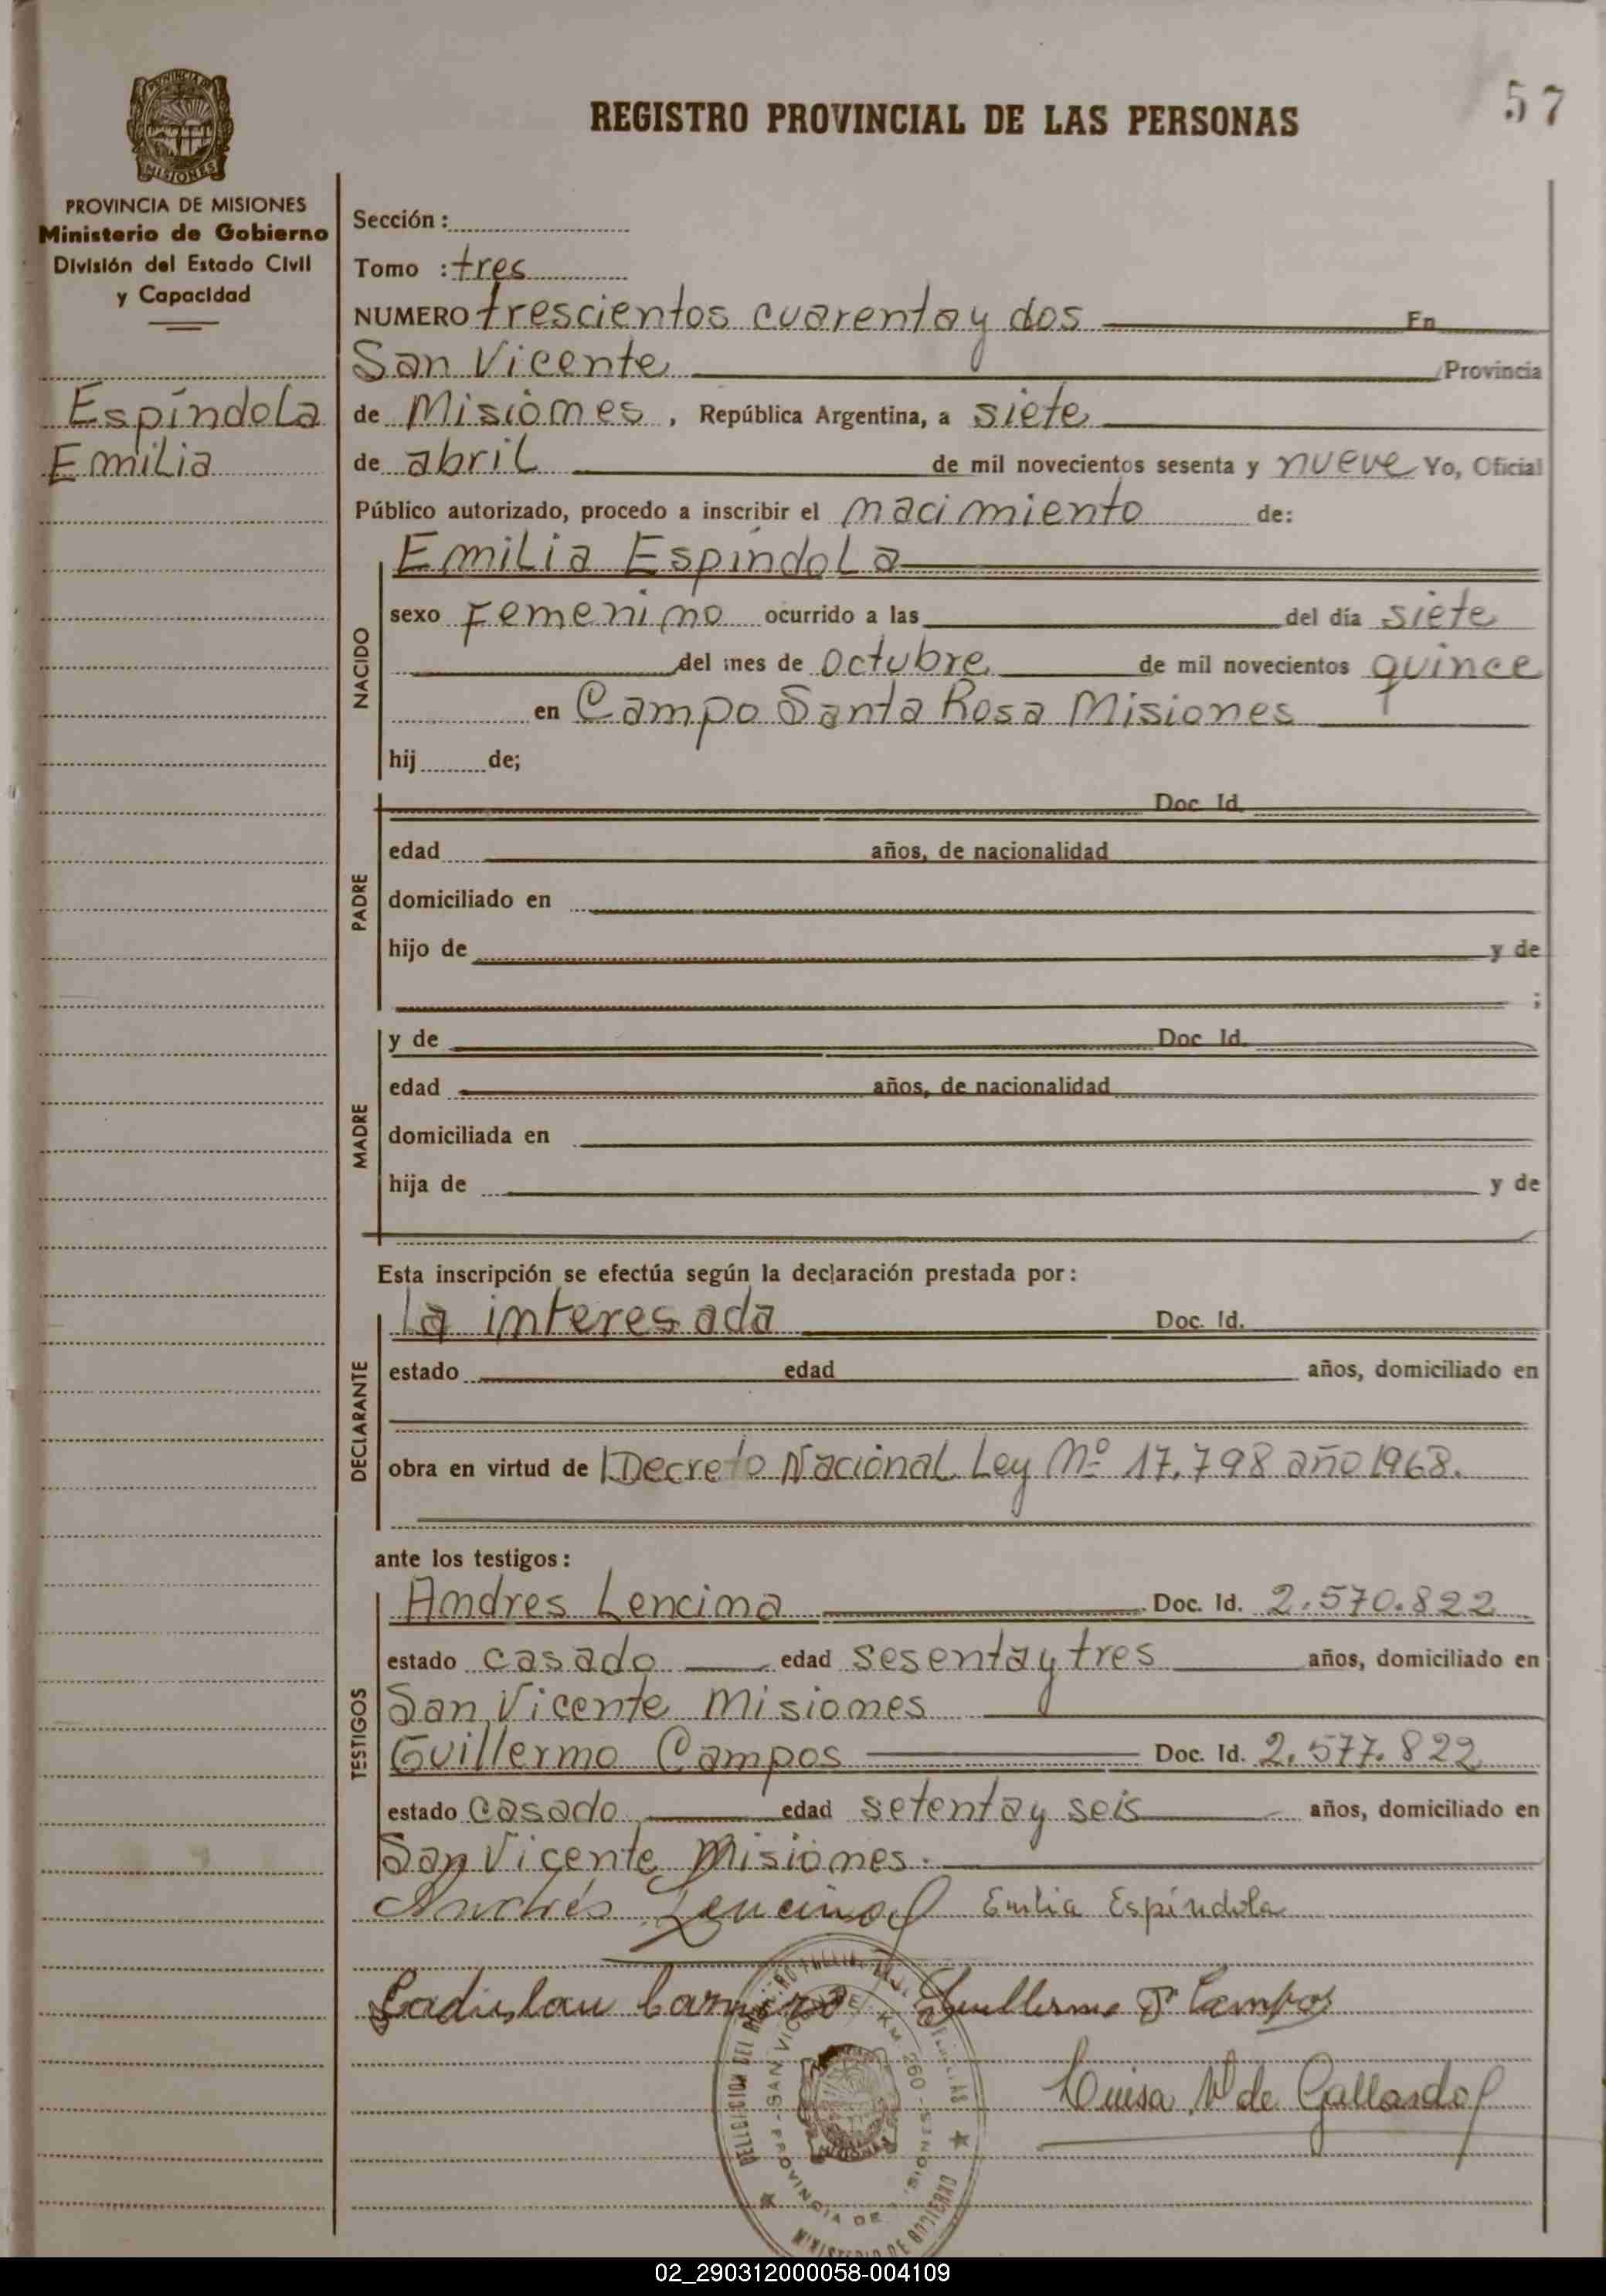 57
PROVINCIA DE
MISIONES
REGISTRO PROVINCIAL DE LAS PERSONAS
PROVINCIA DE MISIONES
Ministerio de Gobierno
División del Estado Civil
y Capacidad
Espíndola
Emilia
Sección :
Tomo : tres
NUMERO trescientos cuarenta y dos En
San Vicente Provincia
de Misiones , República Argentina, a siete
de abril de mil novecientos sesenta y nueve Yo, Oficial
Público autorizado, procedo a inscribir el nacimiento de:
NACIDO
Emilia Espíndola
sexo Femenino ocurrido a las del día siete
del mes de Octubre de mil novecientos quince
en Campo Santa Rosa Misiones
hij de;
PADRE
Doc Id
edad años, de nacionalidad
domiciliado en
hijo de y de
;
MADRE
y de Doc Id.
edad años, de nacionalidad
domiciliada en
hija de y de
Esta inscripción se efectúa según la declaración prestada por :
DECLARANTE
La interesada Doc. Id.
estado edad años, domiciliado en
obra en virtud de Decreto Nacional Ley Nº 17.798 año 1968.
ante los testigos :
TESTIGOS
Andres Lencina Doc. Id. 2.570.822
estado casado edad sesenta y tres años, domiciliado en
San Vicente Misiones
Guillermo Campos Doc. Id. 2.577.822
estado casado edad setenta y seis años, domiciliado en
San Vicente Misiones.
Andrés Lencina Emilia Espíndola
Ladislau Guillermo Campos
Luisa de Gallardo
SAN VICENTE KM 260 - MISIONES
PROVINCIA DE
MINISTERIO DE GOBIERNO
02_290312000058-004109